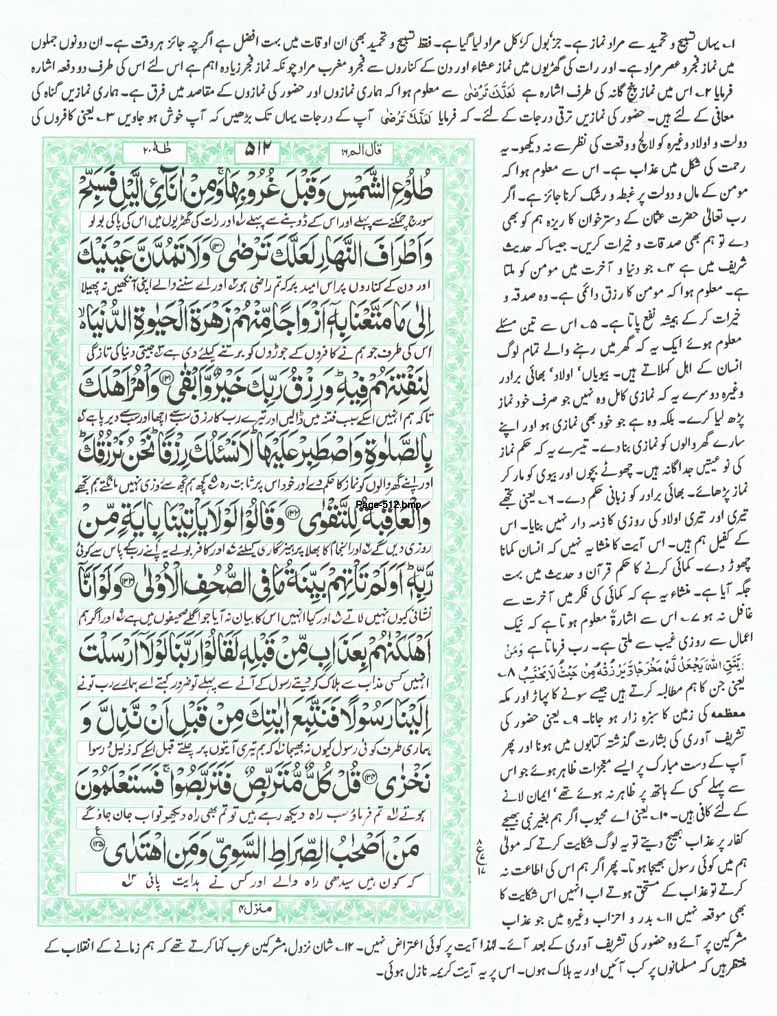 ۱؎ یہاں تسبیح و تحمید سے مراد نماز ہے۔ جز بول کر کل مراد لیا گیا ہے۔ فقط تسبیح و تحمید بھی ان اوقات میں بہت افضل ہے اگرچہ جائز ہر وقت ہے۔ ان دونوں جملوں
میں نماز فجر و عصر مراد ہے۔ اور رات کی گھڑیوں میں نماز عشاء اور دن کے کناروں سے فجر و مغرب مراد چونکہ نماز فجر زیادہ اہم ہے اس لئے اس کی طرف دو دفعہ اشارہ
فرمایا ۲؎ اس میں نماز پنج گانہ کی طرف اشارہ ہے لَعَلَّكَ تَرْضٰى سے معلوم ہوا کہ ہماری نمازوں اور حضور کی نمازوں کے مقاصد میں فرق ہے۔ ہماری نمازیں گناہ کی
معافی کے لئے ہیں۔ حضور کی نمازیں ترقی درجات کے لئے۔ کہ فرمایا لَعَلَّكَ تَرْضٰى آپ کے درجات یہاں تک بڑھیں کہ آپ خوش ہو جاویں ۳؎ یعنی کافروں کی
دولت و اولاد وغیرہ کو لالچ و وقعت کی نظر سے نہ دیکھو۔ یہ
رحمت کی شکل میں عذاب ہے۔ اس سے معلوم ہوا کہ
مومن کے مال و دولت پر غبطہ و رشک کرنا جائز ہے۔ اگر
رب تعالیٰ حضرت عثمان کے دسترخوان کا ریزہ ہم کو بھی
دے تو ہم بھی صدقات و خیرات کریں۔ جیسا کہ حدیث
شریف میں ہے ۴؎ جو دنیا و آخرت میں مومن کو ملتا
ہے۔ معلوم ہوا کہ مومن کا رزق دائمی ہے۔ وہ صدقہ و
خیرات کر کے ہمیشہ نفع پاتا ہے۔ ۵؎ اس سے تین مسئلے
معلوم ہوئے ایک یہ کہ گھر میں رہنے والے تمام لوگ
انسان کے اہل کہلاتے ہیں۔ بیویاں' اولاد' بھائی برادر
وغیرہ دوسرے یہ کہ نمازی کامل وہ نہیں جو صرف خود نماز
پڑھ لیا کرے۔ بلکہ وہ ہے جو خود بھی نمازی ہو اور اپنے
سارے گھر والوں کو نمازی بنا دے۔ تیسرے یہ کہ حکم نماز
کی نوعیتیں جداگانہ ہیں۔ چھوٹے بچوں اور بیوی کو مار کر
نماز پڑھائے۔ بھائی برادر کو زبانی حکم دے۔ ۶؎ یعنی تجھے
تیری اور تیری اولاد کی روزی کا ذمہ دار نہیں بنایا۔ اس
کے کفیل ہم ہیں۔ اس آیت کا منشا یہ نہیں کہ انسان کمانا
چھوڑ دے۔ کمائی کرنے کا حکم قرآن و حدیث میں بہت
جگہ آیا ہے۔ منشاء یہ ہے کہ کمائی کی فکر میں آخرت سے
غافل نہ ہو ۷؎ اس سے اشارۃً معلوم ہوتا ہے کہ نیک
اعمال سے روزی غیب سے ملتی ہے۔ رب فرماتا ہے وَمَنْ
يَتَّقِ اللّٰهَ يَجْعَلْ لَّهٗ مَخْرَجًا وَّيَرْزُقْهُ مِنْ حَيْثُ لَا يَحْتَسِبُ ۸؎
یعنی جن کا ہم مطالبہ کرتے ہیں جیسے سونے کا پہاڑ اور مکہ
معظمہ کی زمین کا سبزہ زار ہو جانا۔ ۹؎ یعنی حضور کی
تشریف آوری کی بشارت گذشتہ کتابوں میں ہونا اور پھر
آپ کے دست مبارک پر ایسے معجزات ظاہر ہوئے جو اس
سے پہلے کسی کے ہاتھ پر ظاہر نہ ہوئے تھے' ایمان لانے
کے لئے کافی ہیں۔ ۱۰؎ یعنی اے محبوب اگر ہم بغیر نبی بھیجے
کفار پر عذاب بھیج دیتے تو یہ لوگ شکایت کرتے کہ مولیٰ
ہم میں کوئی رسول بھیجا ہوتا۔ پھر اگر ہم اس کی اطاعت نہ
کرتے تو عذاب کے مستحق ہوتے اب انہیں اس شکایت کا
بھی موقعہ نہیں ۱۱؎ بدر و احزاب وغیرہ میں جو عذاب
مشرکین پر آئے وہ حضور کی تشریف آوری کے بعد آئے۔ لہٰذا آیت پر کوئی اعتراض نہیں۔ ۱۲؎ شان نزول مشرکین عرب کہا کرتے تھے کہ ہم زمانے کے انقلاب کے
منتظر ہیں کہ مسلمانوں پر کب آئیں اور یہ ہلاک ہوں۔ اس پر یہ آیت کریمہ نازل ہوئی۔
قال الم ۱۶
۵۱۲
طٰهٰ ۲۰
طُلُوْعِ الشَّمْسِ وَقَبْلَ غُرُوْبِهَا ۚ وَمِنْ اٰنَآئِ الَّيْلِ فَسَبِّحْ
سورج چمکنے سے پہلے اور اس کے ڈوبنے سے پہلے اور رات کی گھڑیوں میں اس کی پاکی بولو
وَاَطْرَافَ النَّهَارِ لَعَلَّكَ تَرْضٰى ﴿۱۳۰﴾ وَلَا تَمُدَّنَّ عَيْنَيْكَ
اور دن کے کناروں پر اس امید پر کہ تم راضی ہو اور اے سننے والے اپنی آنکھیں نہ پھیلا
اِلٰى مَا مَتَّعْنَا بِهٖٓ اَزْوَاجًا مِّنْهُمْ زَهْرَةَ الْحَيٰوةِ الدُّنْيَا ۙ
اس کی طرف جو ہم نے کافروں کے جوڑوں کو برتنے کیلئے دی ہے جیتی دنیا کی تازگی
لِنَفْتِنَهُمْ فِيْهِ ؕ وَرِزْقُ رَبِّكَ خَيْرٌ وَّاَبْقٰى ﴿۱۳۱﴾ وَاْمُرْ اَهْلَكَ
تاکہ ہم انہیں اسکے سبب فتنہ میں ڈالیں اور تیرے رب کا رزق سب سے اچھا اور سب سے دیر پا ہے
بِالصَّلٰوةِ وَاصْطَبِرْ عَلَيْهَا ؕ لَا نَسْـَٔلُكَ رِزْقًا ؕ نَحْنُ نَرْزُقُكَ ؕ
اور اپنے گھر والوں کو نماز کا حکم دے اور خود اس پر ثابت رہ کچھ ہم تجھ سے روزی نہیں مانگتے ہم تجھے
وَالْعَاقِبَةُ لِلتَّقْوٰى ﴿۱۳۲﴾ وَقَالُوْا لَوْلَا يَاْتِيْنَا بِاٰيَةٍ مِّنْ
Page-512.bmp
روزی دیں گے اور انجام کا بھلا پرہیزگاری کیلئے اور کافر بولے یہ اپنے رب کے پاس سے کوئی
رَّبِّهٖ ؕ اَوَلَمْ تَاْتِهِمْ بَيِّنَةُ مَا فِى الصُّحُفِ الْاُوْلٰى ﴿۱۳۳﴾ وَلَوْ اَنَّآ
نشانی کیوں نہیں لاتے اور کیا انہیں اس کا بیان نہ آیا جو اگلے صحیفوں میں ہے اور اگر ہم
اَهْلَكْنٰهُمْ بِعَذَابٍ مِّنْ قَبْلِهٖ لَقَالُوْا رَبَّنَا لَوْلَآ اَرْسَلْتَ
انہیں کسی عذاب سے ہلاک کر دیتے رسول کے آنے سے پہلے تو ضرور کہتے اے ہمارے رب تو نے
اِلَيْنَا رَسُوْلًا فَنَتَّبِعَ اٰيٰتِكَ مِنْ قَبْلِ اَنْ نَّذِلَّ وَ
ہماری طرف کوئی رسول کیوں نہ بھیجا کہ ہم تیری آیتوں پر چلتے قبل اسکے کہ ذلیل و رسوا
نَخْزٰى ﴿۱۳۴﴾ قُلْ كُلٌّ مُّتَرَبِّصٌ فَتَرَبَّصُوْا ۚ فَسَتَعْلَمُوْنَ
ہوتے تم فرماؤ سب راہ دیکھ رہے ہیں تو تم بھی راہ دیکھو تو اب جان جاؤ گے
مَنْ اَصْحٰبُ الصِّرَاطِ السَّوِىِّ وَمَنِ اهْتَدٰى ﴿۱۳۵﴾
کہ کون ہیں سیدھی راہ والے اور کس نے ہدایت پائی
منزل ۴